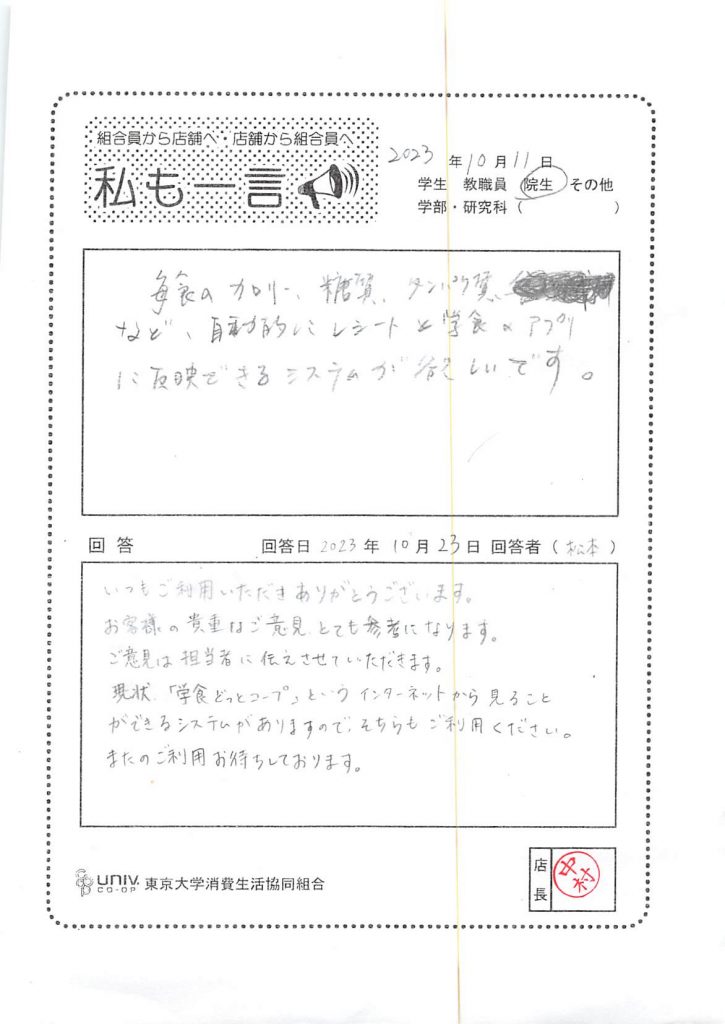 組合員から店舗へ・店舗から組合員へ
私も一言
2023年10月11日
学生 教職員 院生 その他
学部・研究科( )
毎食のカロリー、糖質、タンパク質、
など、自動的にレシートと学食のアプリ
に反映できるシステムが欲しいです。
回答 回答日 2023年 10月23日 回答者(松本)
いつもご利用いただきありがとうございます。
お客様の貴重なご意見、とても参考になります。
ご意見は担当者に伝えさせていただきます。
現状、「学食どっとコープ」というインターネットから見ること
ができるシステムがありますので、そちらもご利用ください。
またのご利用お待ちしております。
UNIV. CO-OP 東京大学消費生活協同組合
店長 中村